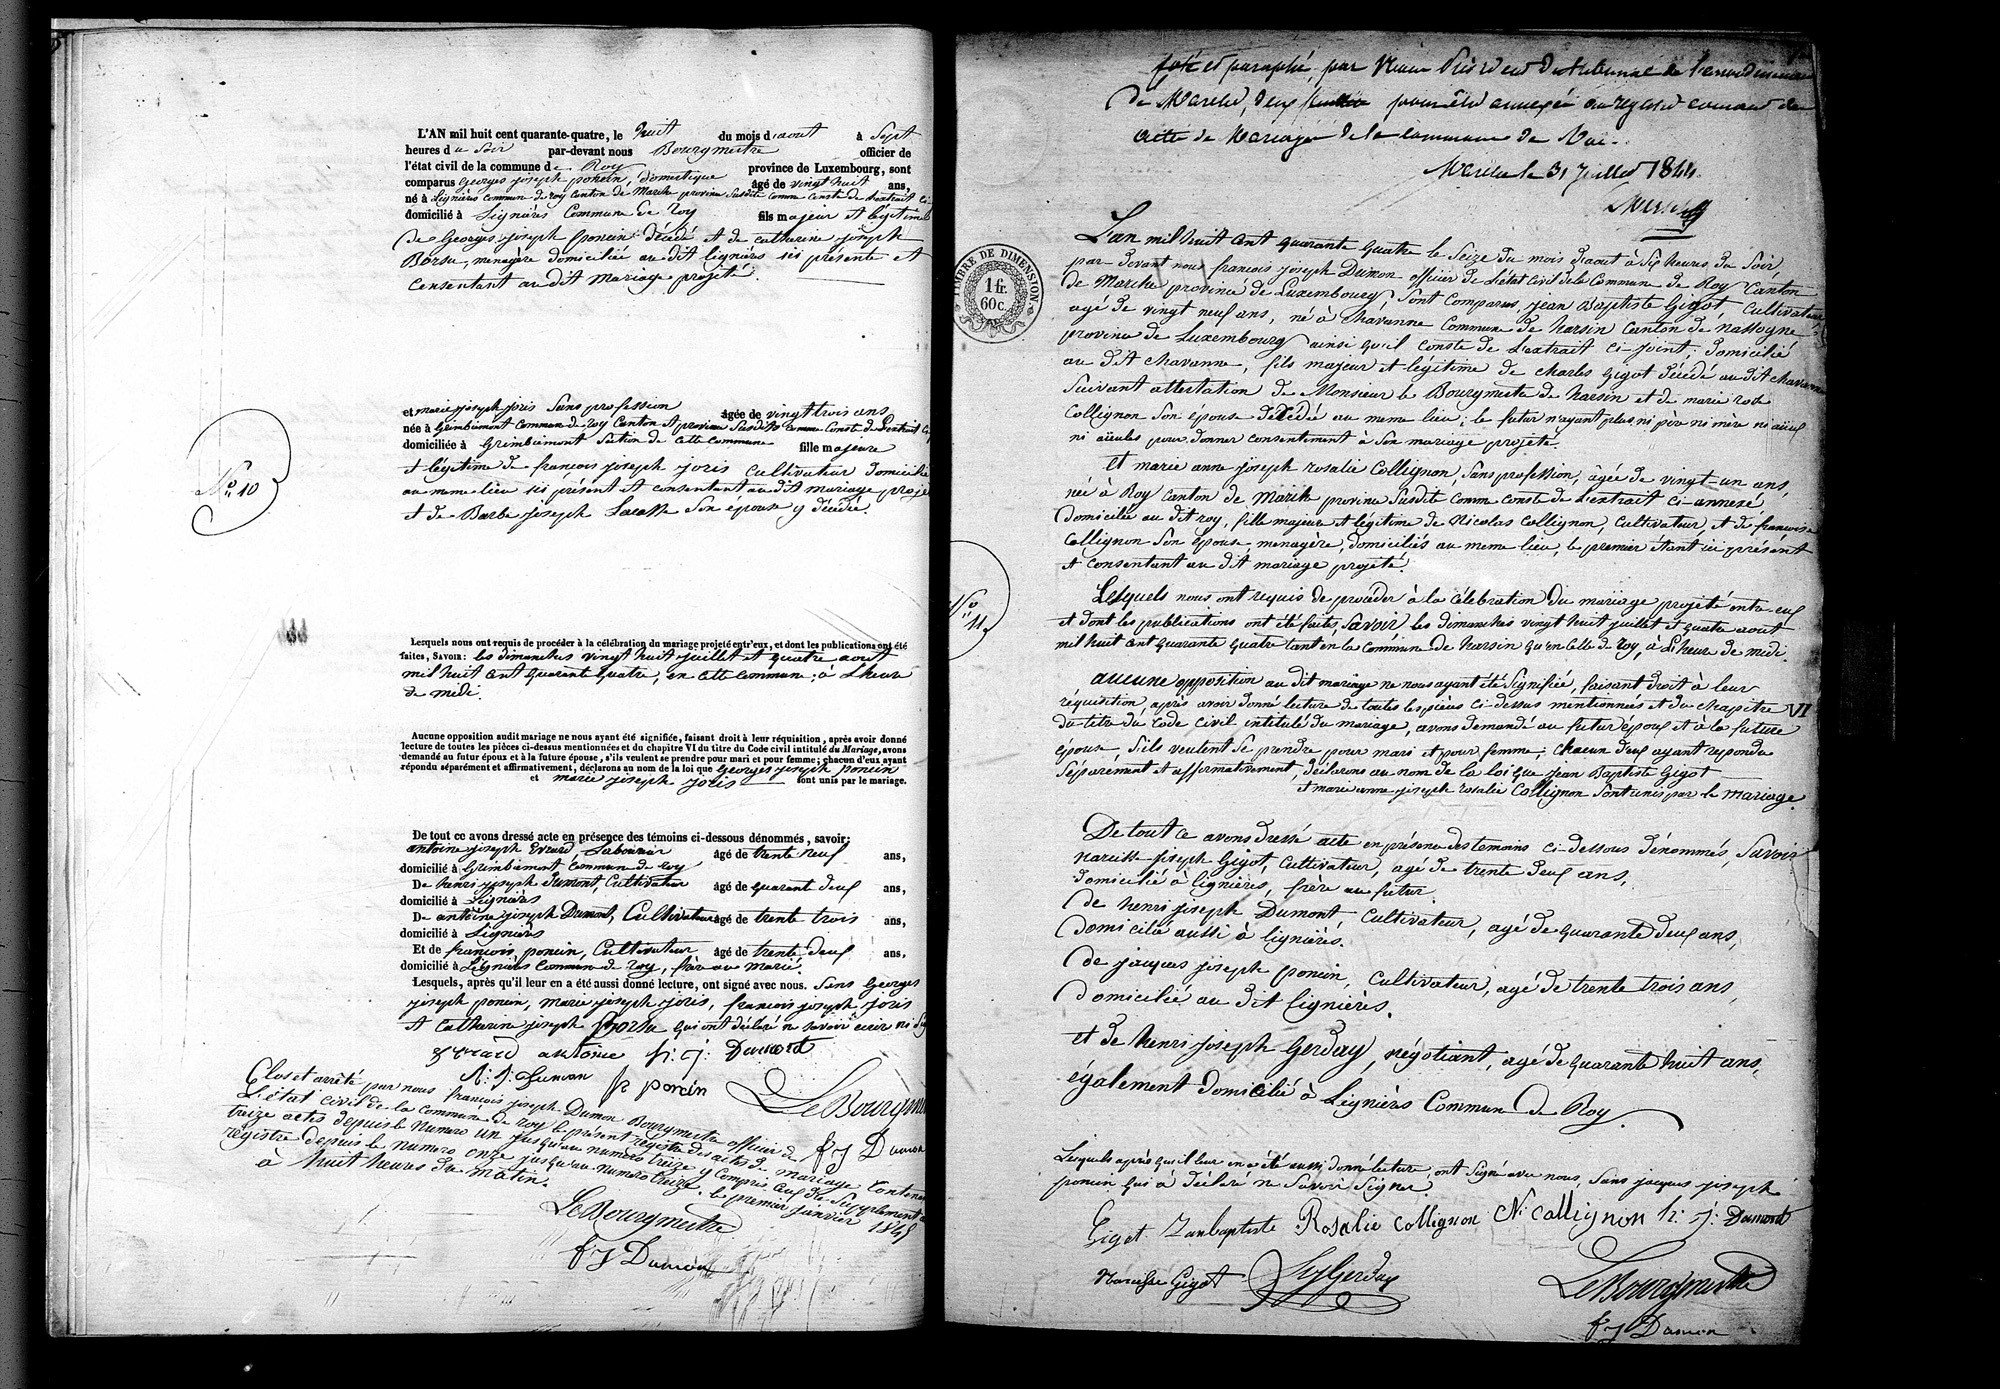 L'AN mil huit cent quarante-quatre, le huit du mois d'aout à sept
heures du soir par-devant nous Bourgmestre officier de
l'état civil de la commune de Roy province de Luxembourg, sont
comparus Georges joseph poncin, domestique âgé de vingt huit ans,
né à Lignières commune de roy canton de Marche province susdite comme conste de l'extrait ci-
domicilié à Lignières Commune de roy fils majeur et légitime
de Georges joseph poncin décédé et de catherine joseph
Borsu, menagère domiciliée au dit lignières ici présente et
consentant au dit mariage projeté.
et marie joseph joris sans profession âgée de vingt trois ans
née à Grimbiemont Commune de roy Canton et province susdits comme Conste de l'extrait ci-
domiciliée à Grimbiemont Section de cette commune fille majeure
et légitime de françois joseph joris cultivateur domicilié
au meme lieu ici présent et consentant au dit mariage projeté
et de Barbe joseph Lacasse son épouse y décédée.
N° 10
Lesquels nous ont requis de procéder à la célébration du mariage projeté entr'eux, et dont les publications ont été
faites, SAVOIR: les dimanches vingt huit juillet et quatre aout
mil huit cent quarante quatre, en cette commune, à l'heure
de midi.
Aucune opposition audit mariage ne nous ayant été signifiée, faisant droit à leur réquisition, après avoir donné
lecture de toutes les pièces ci-dessus mentionnées et du chapitre VI du titre du Code civil intitulé du Mariage, avons
demandé au futur époux et à la future épouse, s'ils veulent se prendre pour mari et pour femme; chacun d'eux ayant
répondu séparément et affirmativement, déclarons au nom de la loi que Georges joseph poncin
et marie joseph joris sont unis par le mariage.
De tout ce avons dressé acte en présence des témoins ci-dessous dénommés, savoir:
antoine joseph Evrard, Laboureur âgé de trente neuf ans,
domicilié à Grimbiemont, Commune de roy
De henri joseph dumont, Cultivateur âgé de quarante deux ans,
domicilié à Lignières
De antoine joseph Dumont, Cultivateur âgé de trente trois ans,
domicilié à Lignières
Et de françois poncin, Cultivateur âgé de trente deux ans,
domicilié à Lignières Commune de roy, frère au marié.
Lesquels, après qu'il leur en a été aussi donné lecture, ont signé avec nous. Sans Georges
joseph poncin, marie joseph joris, françois joseph joris
et Catherine joseph Borsu qui ont déclaré ne savoir écrire ni
Evrard antoine h: j: Dumont
A: J: Dumon fr poncin Le Bourgmes
F J Dumon
Clos et arrêté par nous françois joseph Dumon Bourgmestre officier de
L'état civil de la Commune de roy le présent registre des actes de mariage Contenant
treize actes depuis le Numero un jusqu'au numero treize y compris ceux de Supplement
registre depuis le numero onze jusqu'au numero treize. le premier janvier 1845
à huit heures du matin.
Le Bourgmestre
F J Dumon
Coté et paraphé, par Nous Président du tribunal de l'arrondissement
de Marche, pour être annexé au registre courant des
actes de Mariage de la commune de Roi.
Marche le 31 Juillet 1844.
TIMBRE DE DIMENSION
1 fr.
60 c.
L'an mil huit cent quarante quatre le Seize du mois d'aout à Six heures du Soir
par-devant nous françois joseph Dumon officier de l'état civil de la Commune de Roy Canton
de Marche province de Luxembourg, sont comparus, jean Baptiste Gigot, Cultivateur
agé de vingt neuf ans, né à Chavanne Commune de harsin Canton de nassogne
province de Luxembourg ainsi qu'il conste de l'extrait ci-joint; domicilié
au dit chavanne, fils majeur et légitime de charles Gigot décédé au dit chavanne
suivant attestation de Monsieur le Bourgmestre de harsin et de marie rose
Collignon Son épouse décédé au meme lieu; le futur n'ayant plus ni père ni mère ni aïeuls
ni aïeules pour donner consentement à son mariage projeté.
et marie anne joseph rosalie Collignon, sans profession, âgée de vingt-un ans,
née à Roy canton de Marche province susdite comme conste de L'extrait ci-annexé
domiciliée au dit roy, fille majeure et légitime de Nicolas Collignon, Cultivateur, et de françoise
Collignon Son épouse, menagère, domiciliés au meme lieu, le premier étant ici présent
et consentant au dit mariage projeté.
N° 11
Lesquels nous ont requis de procéder à la célébration du mariage projeté entre eux
et dont les publications ont été faites, savoir les dimanches vingt huit juillet et quatre aout
mil huit cent quarante quatre tant en la Commune de harsin qu'en celle de roy, à L'heure de midi.
aucune opposition au dit mariage ne nous ayant été signifiée, faisant droit à leur
réquisition, après avoir donné lecture de toutes les pièces ci-dessus mentionnées et du chapitre VI
du titre du code civil intitulé du mariage, avons demandé au futur époux et à la future
épouse, S'ils veulent se prendre pour mari et pour femme; chacun d'eux ayant repondu
séparément et affirmativement, déclarons au nom de la loi que jean Baptiste Gigot
et marie anne joseph rosalie Collignon sont unis par le mariage.
De tout ce avons dressé acte en présence des temoins ci-dessous dénommés, Savoir
narcisse joseph Gigot, Cultivateur, agé de trente deux ans,
domicilié à Lignières, frère au futur.
de henri joseph Dumont, Cultivateur, agé de quarante deux ans,
domicilié aussi à lignières.
de jacques joseph poncin, Cultivateur, agé de trente trois ans,
domicilié au dit lignières.
et de henri joseph Gerday, négotiant, agé de quarante huit ans,
également domicilié à Lignières Commune de Roy.
Lesquels après qu'il leur en a été aussi donné lecture, ont Signé avec nous, Sans jacques joseph
poncin qui a déclaré ne Savoir Signer.
Gigot Janbaptiste Rosalie collignon N. collignon h: j: Dumont
Narcisse Gigot HJGerday Le Bourgmestre
F J Dumon